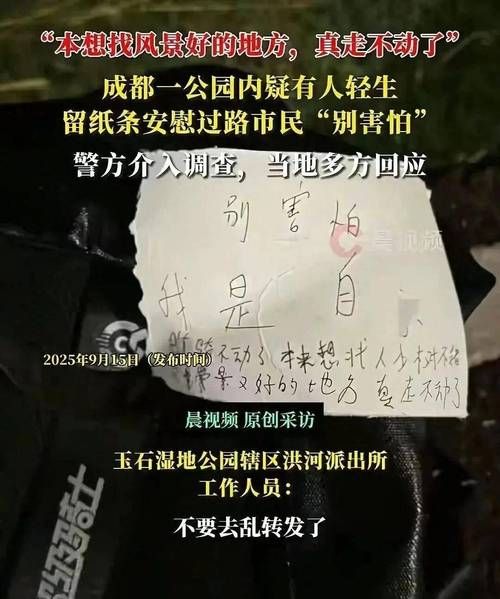 “本想找风景好的地方，真走不动了”
成都一公园内疑有人轻生
留纸条安慰过路市民“别害怕”
警方介入调查，当地多方回应
别害怕
晨视频
我是自
不动了 本来想找人少
景又好的地方 真走不动了
2025年9月15日（发布时间）
晨视频 原创采访
玉石湿地公园辖区洪河派出所
工作人员：
不要去乱转发了